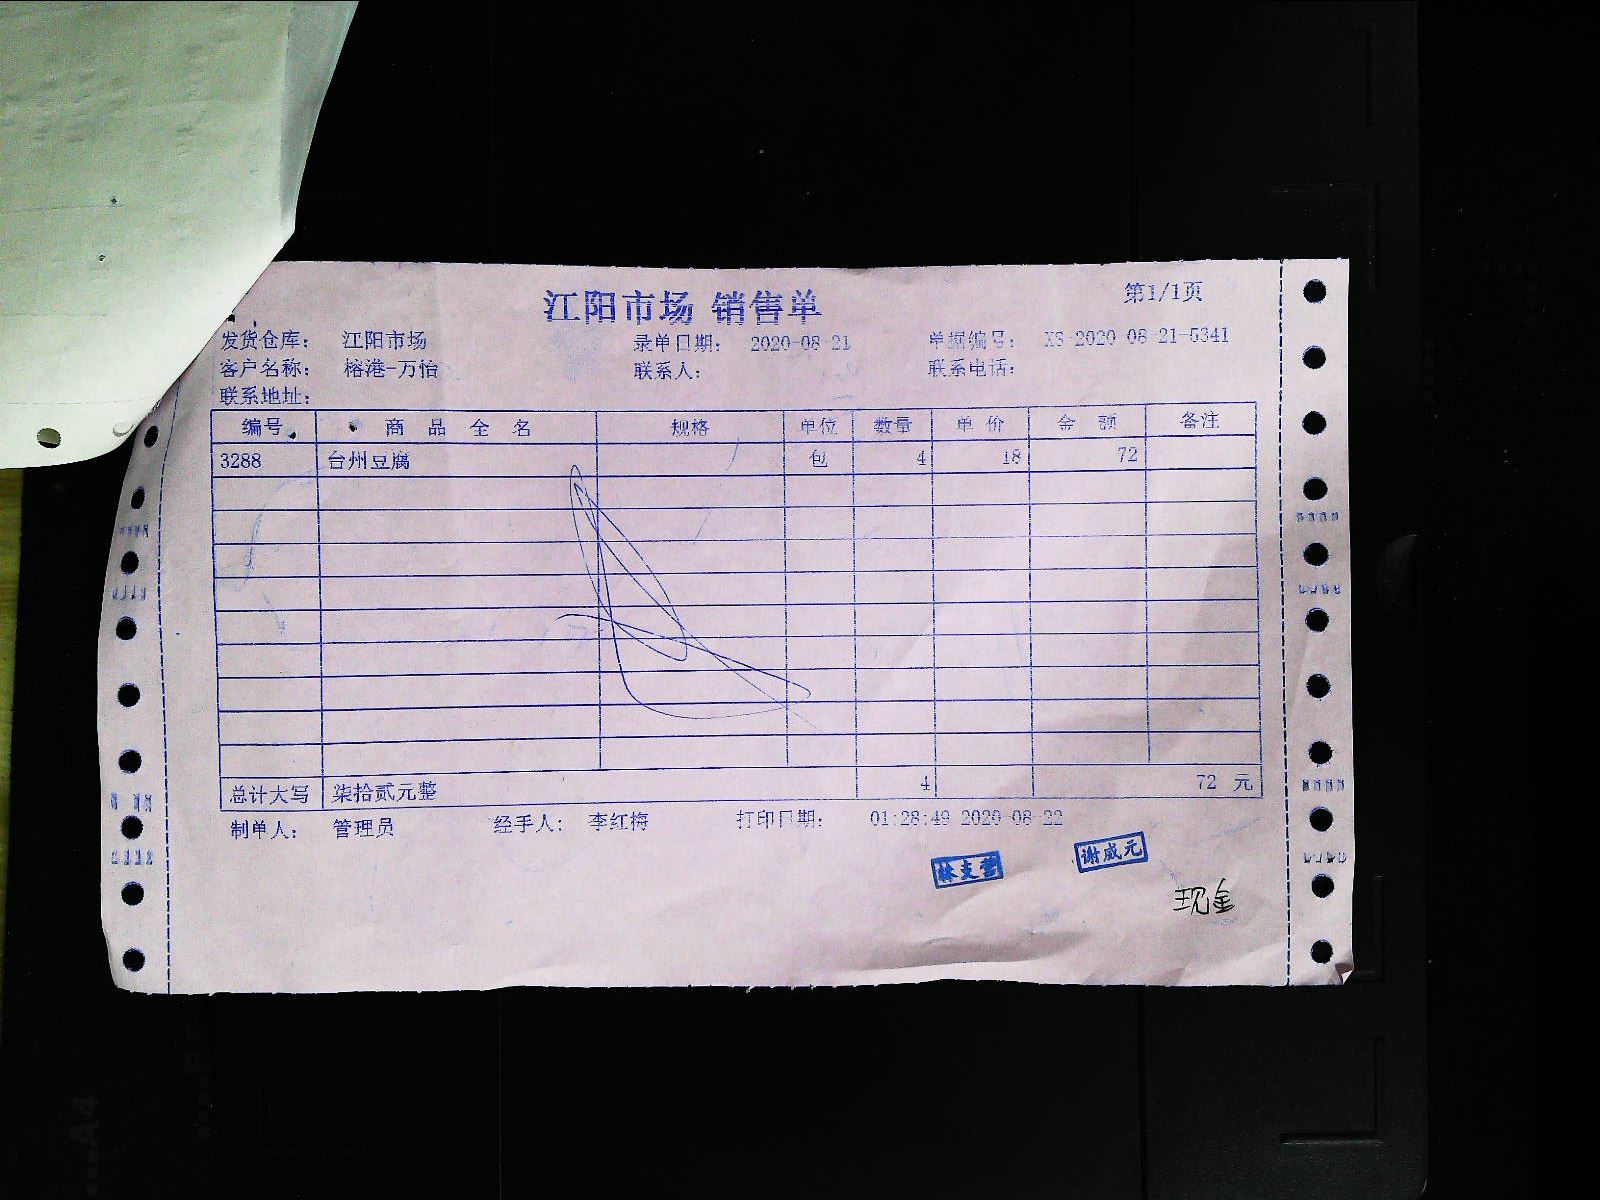 江阳市场 销售单
第1/1页
发货仓库: 江阳市场 录单日期: 2020-08-21 单据编号: XS-2020-08-21-5341
客户名称: 榕港-万怡 联系人: 联系电话:
联系地址:
编号 商品全名 规格 单位 数量 单价 金额 备注
3288 台州豆腐 包 4 18 72
总计大写 柒拾贰元整 4 72 元
制单人: 管理员 经手人: 李红梅 打印日期: 01:28:49 2020-08-22
谢威元
现金